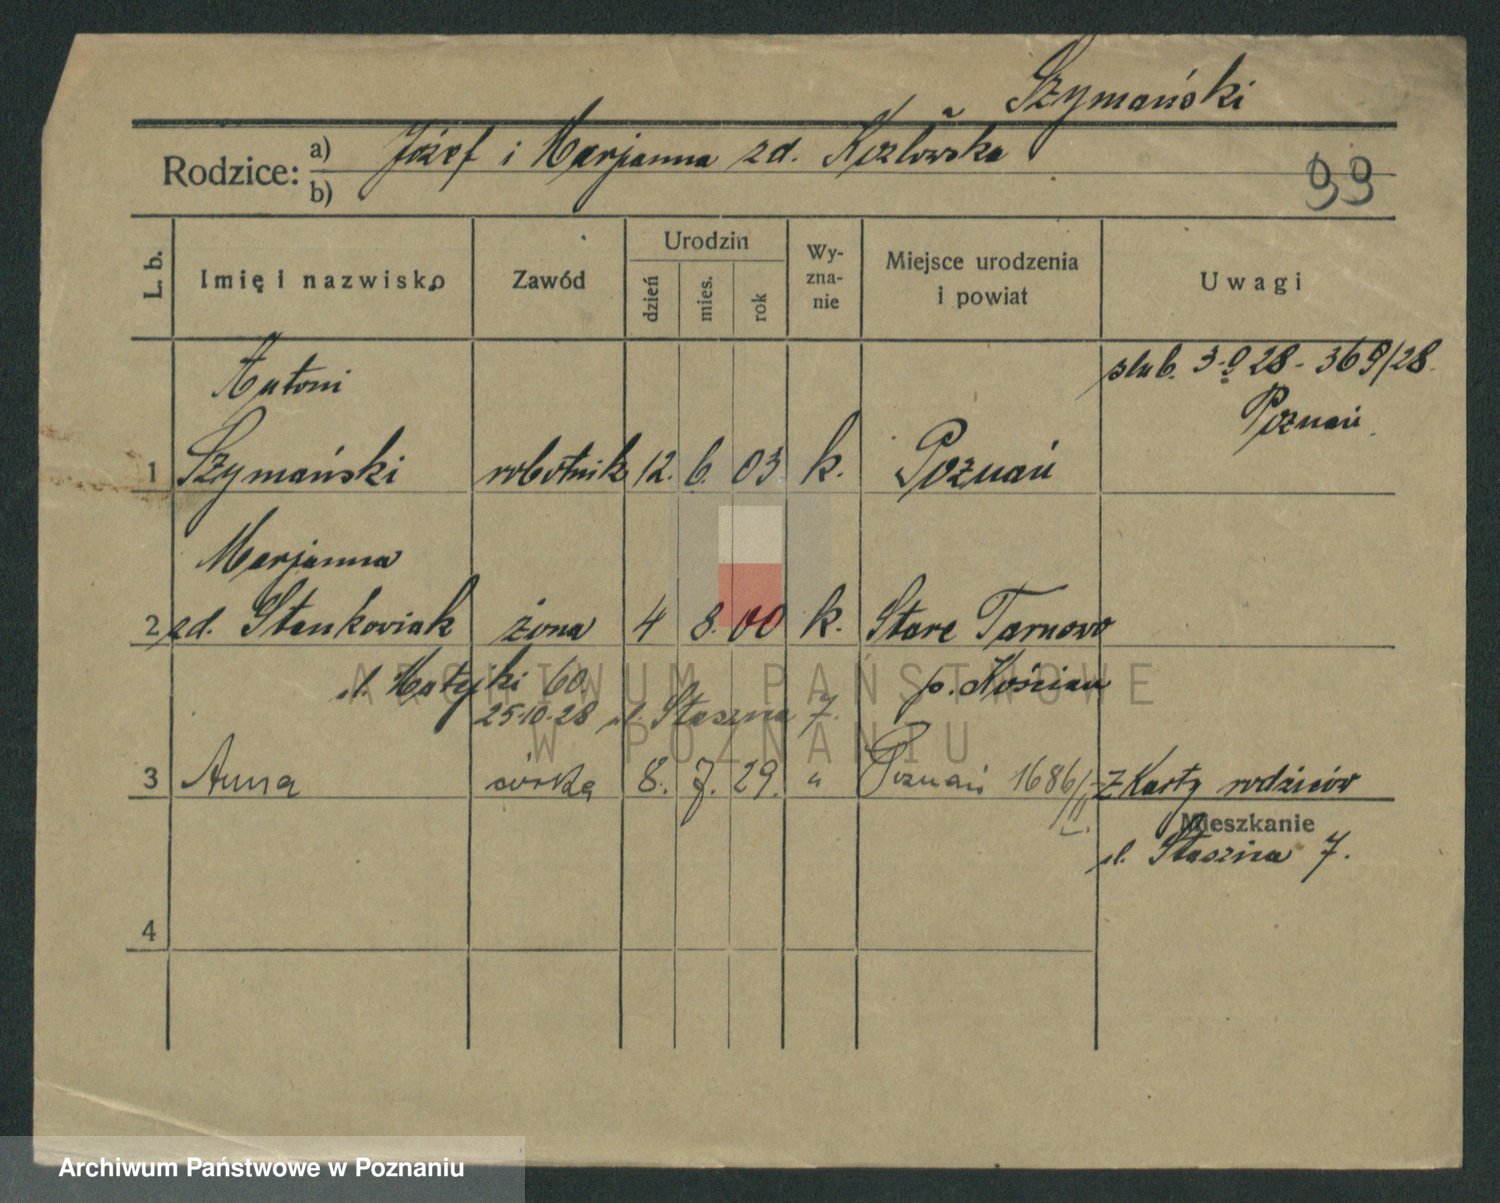 Szymański
Rodzice: a) Józef i Marjanna zd. Kozłowska
b)
99
L. b.
Imię i nazwisko
Zawód
Urodzin
dzień
mies.
rok
Wy-
zna-
nie
Miejsce urodzenia
i powiat
Uwagi
Antoni
ślub. 3.9 28 - 369/28.
Poznań
1 Szymański robotnik 12. 6. 03 k. Poznań
Marjanna
2 zd. Stankowiak żona 4 8. 00 k. Stare Tarnowo
ul. Matejki 60. p. Kościan
25.10.28 ul. Staszica 7.
3 Anna córka 8. 7. 29. " Poznań 1686/II z Karty rodziców
Mieszkanie
ul. Staszica 7.
4
ARCHIWUM PAŃSTWOWE
W POZNANIU
Archiwum Państwowe w Poznaniu